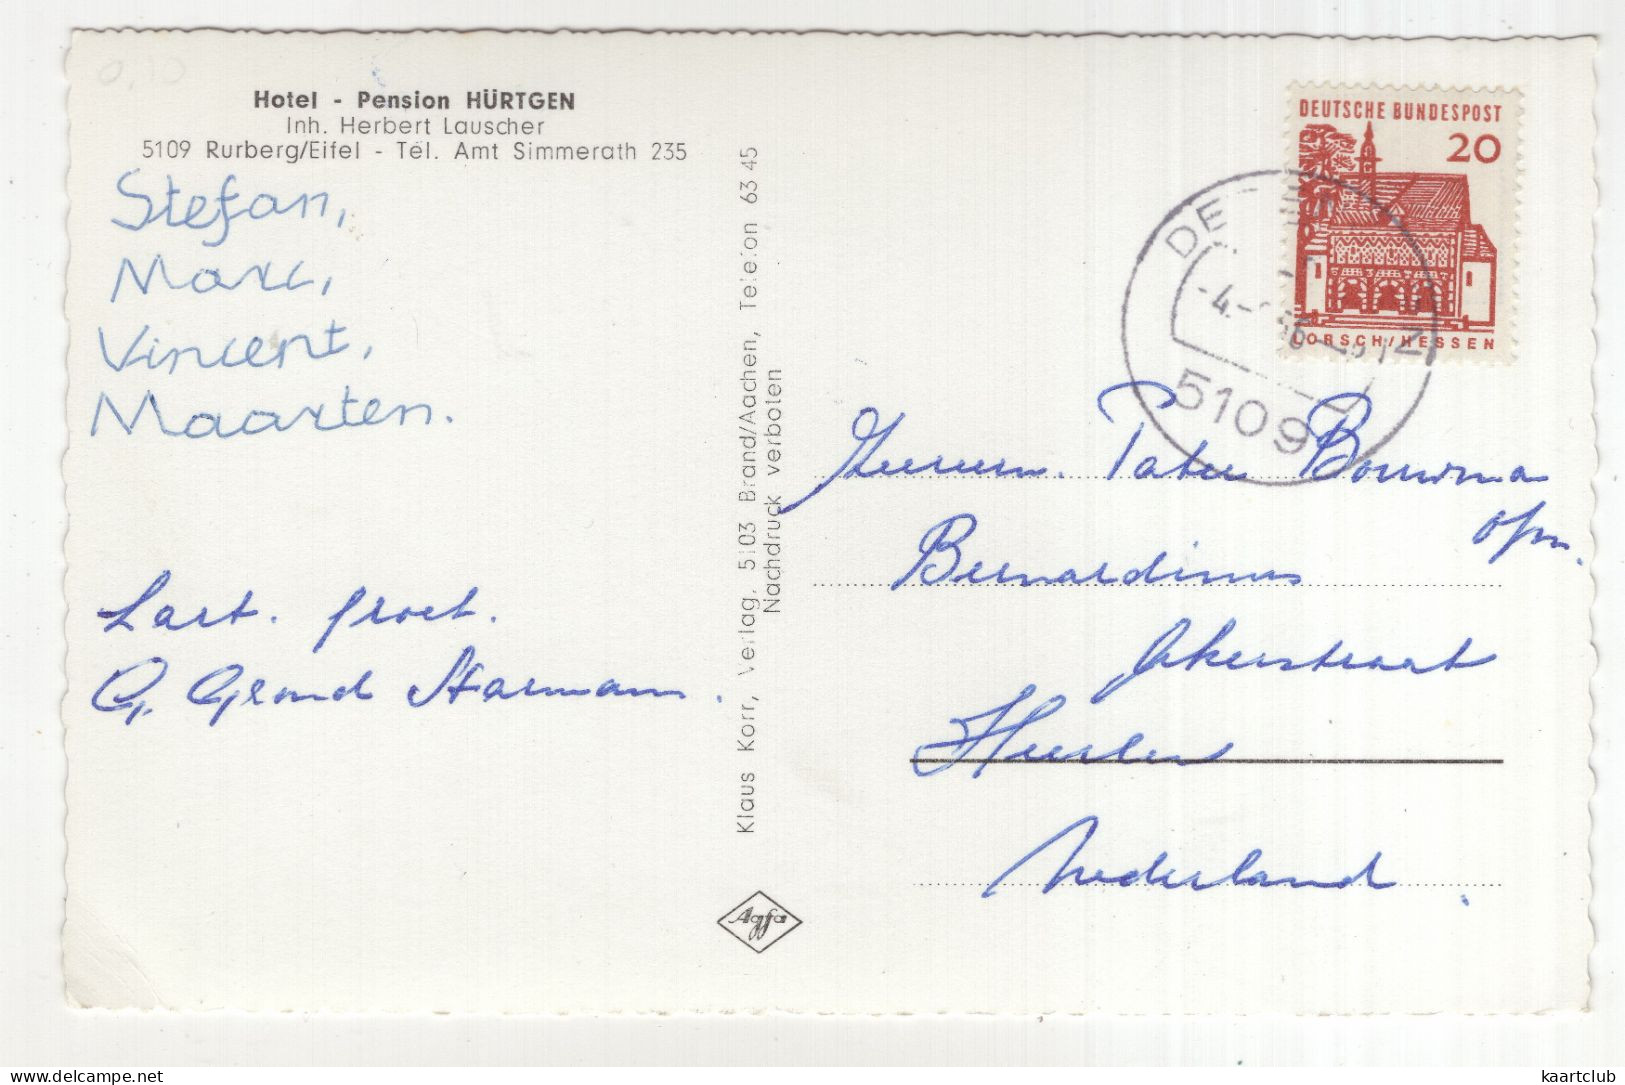 Hotel - Pension HÜRTGEN
Inh. Herbert Lauscher
5109 Rurberg/Eifel - Tel. Amt Simmerath 235
Stefan,
Marc,
Vincent,
Maarten.
Hart. groet.
G. Grond Harmann.
Klaus Korr, Verlag, 5103 Brand/Aachen, Telefon 63 45
Nachdruck verboten
Agfa
DEUTSCHE BUNDESPOST
20
LORSCH/HESSEN
5109
Pater Bouwma
ofm.
Bernardinus
Akerstraat
Heerlen
Nederland.
kaartclub
delcampe.net